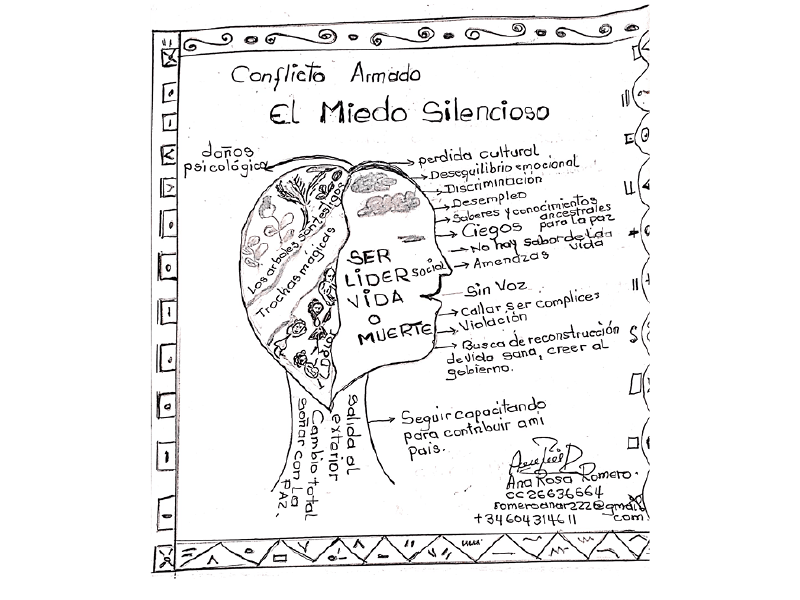 Conflicto Armado
El Miedo Silencioso
daños
psicológico
perdida cultural
Desequilibrio emocional
Discriminación
Desempleo
Saberes y conocimientos
ancestrales
Ciegos para la paz
No hay sabor de la
vida
Amendzas
Sin Voz
Callar ser complices
Violación
Busca de reconstrucción
de vida sana, creer al
gobierno.
Seguir capacitando
para contribuir a mi
pais.
Los arboles son testigos
Trochas magicas
SER
LIDER social
VIDA
O
MUERTE
Salida al
exterior
Cambio total
soñar con la
PAZ.
Ana Rosa Romero.
CC 26636564
romeroanar222@gmail
com
+34604314611